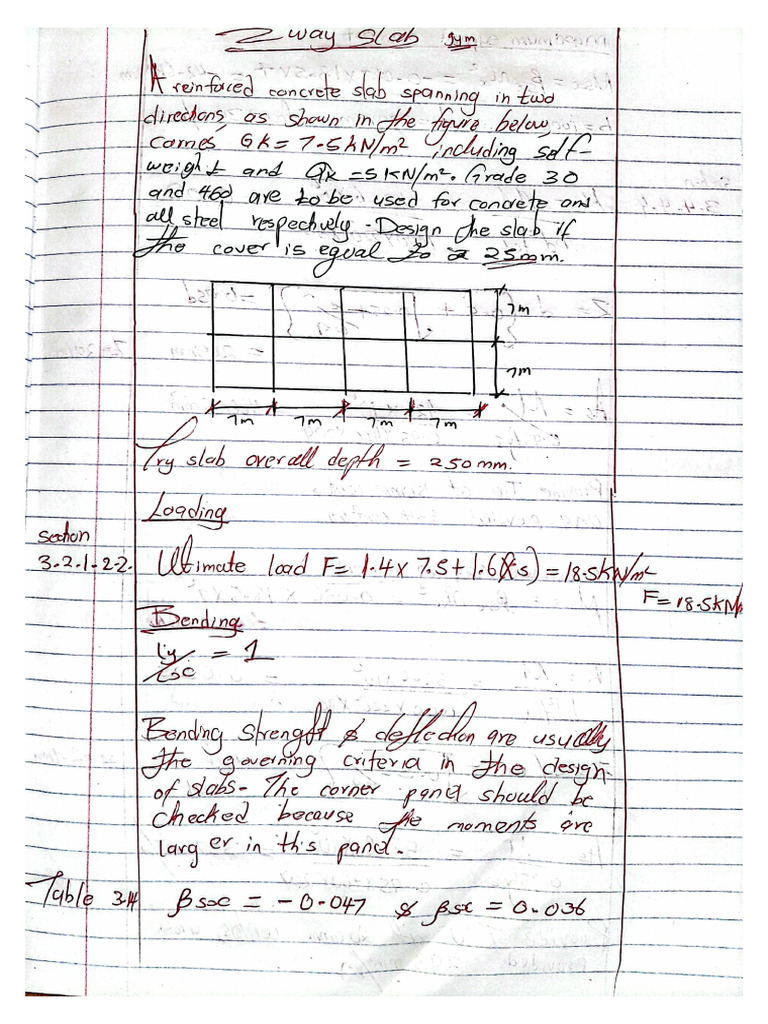 2 way slab gym
A reinforced concrete slab spanning in two
directions as shown in the figure below,
carries, Gk = 7.5kN/m² including self-
weight and Qk = 5KN/m². Grade 30
and 460 are to be used for concrete and
all steel respectively. Design the slab if
the cover is equal to 25mm.
7m
7m
7m 7m 7m 7m
Try slab overall depth = 250mm.
Loading
section
3.2.1.2.2. Ultimate load F = 1.4 x 7.5 + 1.6(5) = 18.5KN/m²
F = 18.5KN/
Bending
ly/lsc = 1
Bending strength & deflection are usually
the governing criteria in the design
of slabs. The corner panel should be
checked because the moments are
larger in this panel.
Table 3.14 βsx = -0.047 & βsx = 0.036